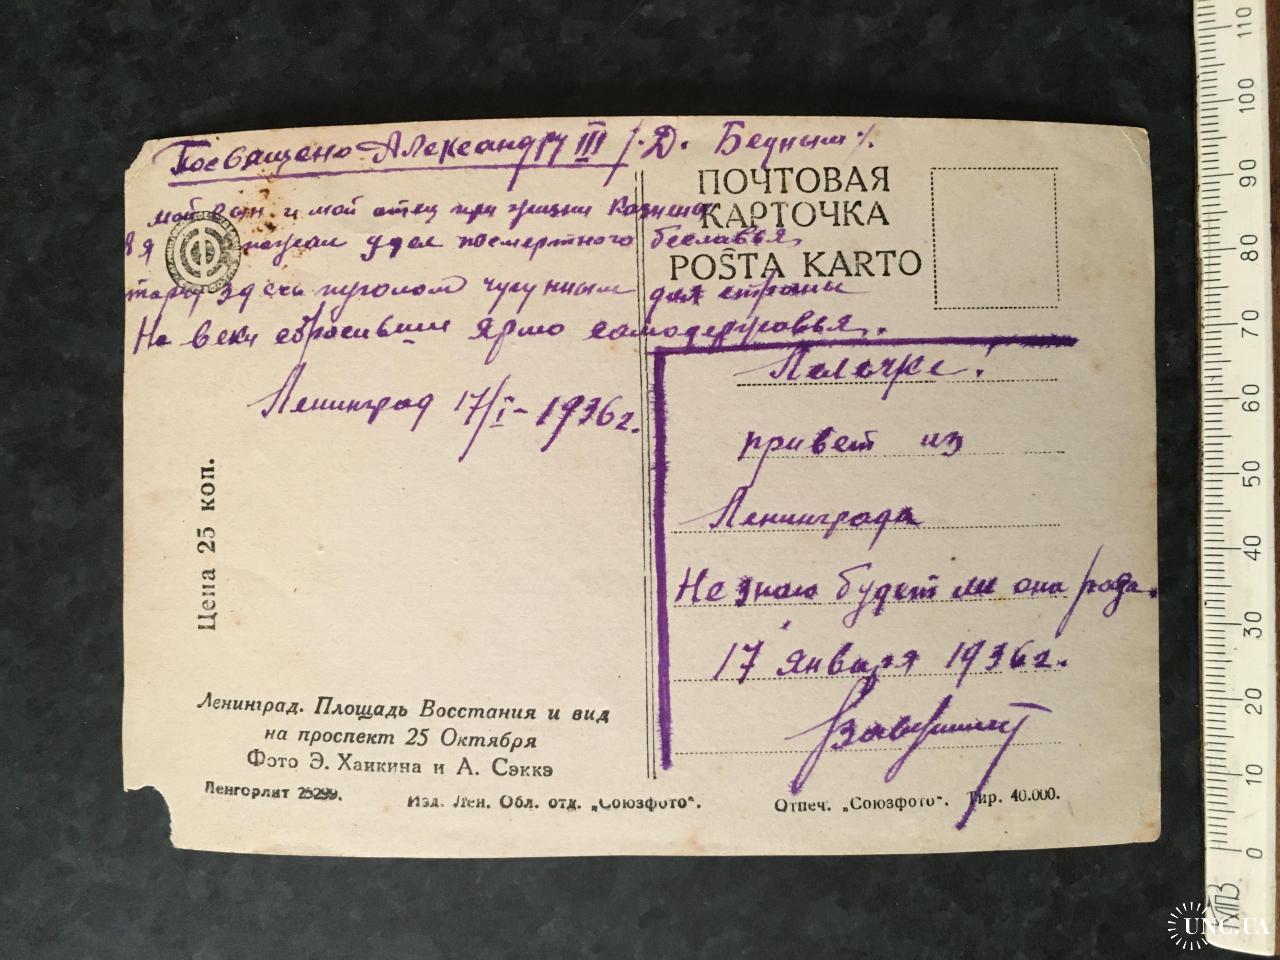 Посвящено Александру III /. Д. Бедным %.
мой сын и мой отец при жизни казнены
я пожал удел посмертного бесславья,
торчу здесь пугалом чугунным для страны
На веки сбросивши ярмо самодержавья.
Ленинград 17/I - 1936 г.
ПОЧТОВАЯ
КАРТОЧКА
POŜTA KARTO
Лелечке!
привет из
Ленинграда
Не знаю будет ли она рада.
17 января 1936 г.
Цена 25 коп.
Ленинград. Площадь Восстания и вид
на проспект 25 Октября
Фото Э. Хаикина и А. Сэккэ
Ленгорлит 25299.
Изд. Лен. Обл. отд. „Союзфото“.
Отпеч. „Союзфото“. Тир. 40.000.
0 10 20 30 40 50 60 70 80 90 100 110
ЛПЗ
UNC.UA